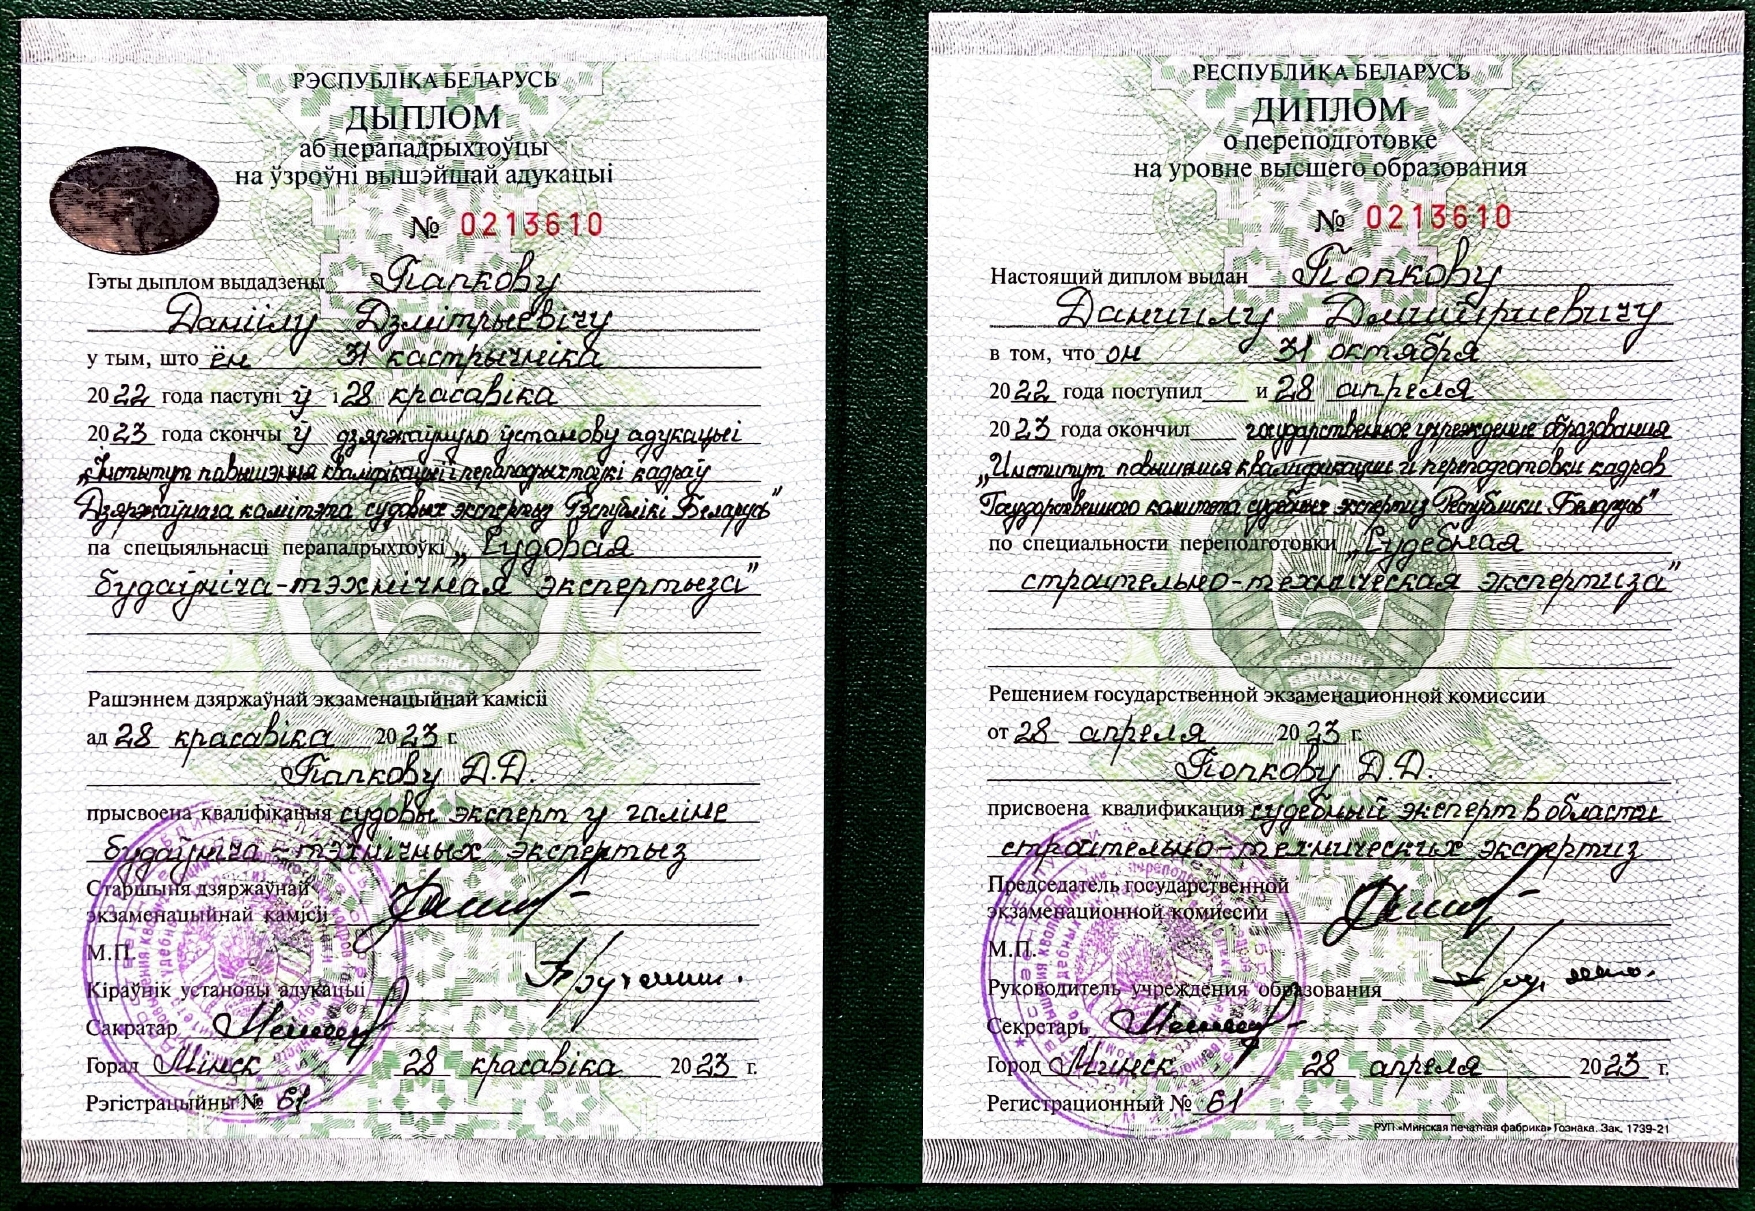 РЭСПУБЛІКА БЕЛАРУСЬ
ДЫПЛОМ
аб перападрыхтоўцы
на ўзроўні вышэйшай адукацыі
№ 0213610
Гэты дыплом выдадзены Папкову
Данiiлу Дзмітрыевічу
у тым, што ён 31 кастрычніка
2022 года паступіў і 28 красавіка
2023 года скончыў дзяржаўную ўстанову адукацыі
„Інстытут павышэння кваліфікацыі і перападрыхтоўкі кадраў
Дзяржаўнага камітэта судовых экспертыз Рэспублікі Беларусь"
па спецыяльнасці перападрыхтоўкі „Судовая
будаўніча-тэхнічная экспертыза"
РЭСПУБЛІКА
БЕЛАРУСЬ
Рашэннем дзяржаўнай экзаменацыйнай камісіі
ад 28 красавіка 2023 г.
Папкову Д.Д.
прысвоена кваліфікацыя судовы эксперт у галіне
будаўніча-тэхнічных экспертыз
Старшыня дзяржаўнай
экзаменацыйнай камісіі
М.П.
Кіраўнік установы адукацыі
Сакратар
Горад Мінск 28 красавіка 2023 г.
Рэгістрацыйны № 61
РЕСПУБЛИКА БЕЛАРУСЬ
ДИПЛОМ
о переподготовке
на уровне высшего образования
№ 0213610
Настоящий диплом выдан Попкову
Даниилу Дмитриевичу
в том, что он 31 октября
2022 года поступил и 28 апреля
2023 года окончил государственное учреждение образования
„Институт повышения квалификации и переподготовки кадров
Государственного комитета судебных экспертиз Республики Беларусь"
по специальности переподготовки „Судебная
строительно-техническая экспертиза"
РЭСПУБЛІКА
БЕЛАРУСЬ
Решением государственной экзаменационной комиссии
от 28 апреля 2023 г.
Попкову Д.Д.
присвоена квалификация судебный эксперт в области
строительно-технических экспертиз
Председатель государственной
экзаменационной комиссии
М.П.
Руководитель учреждения образования
Секретарь
Город Минск 28 апреля 2023 г.
Регистрационный № 61
РУП «Минская печатная фабрика» Гознака. Зак. 1739-21